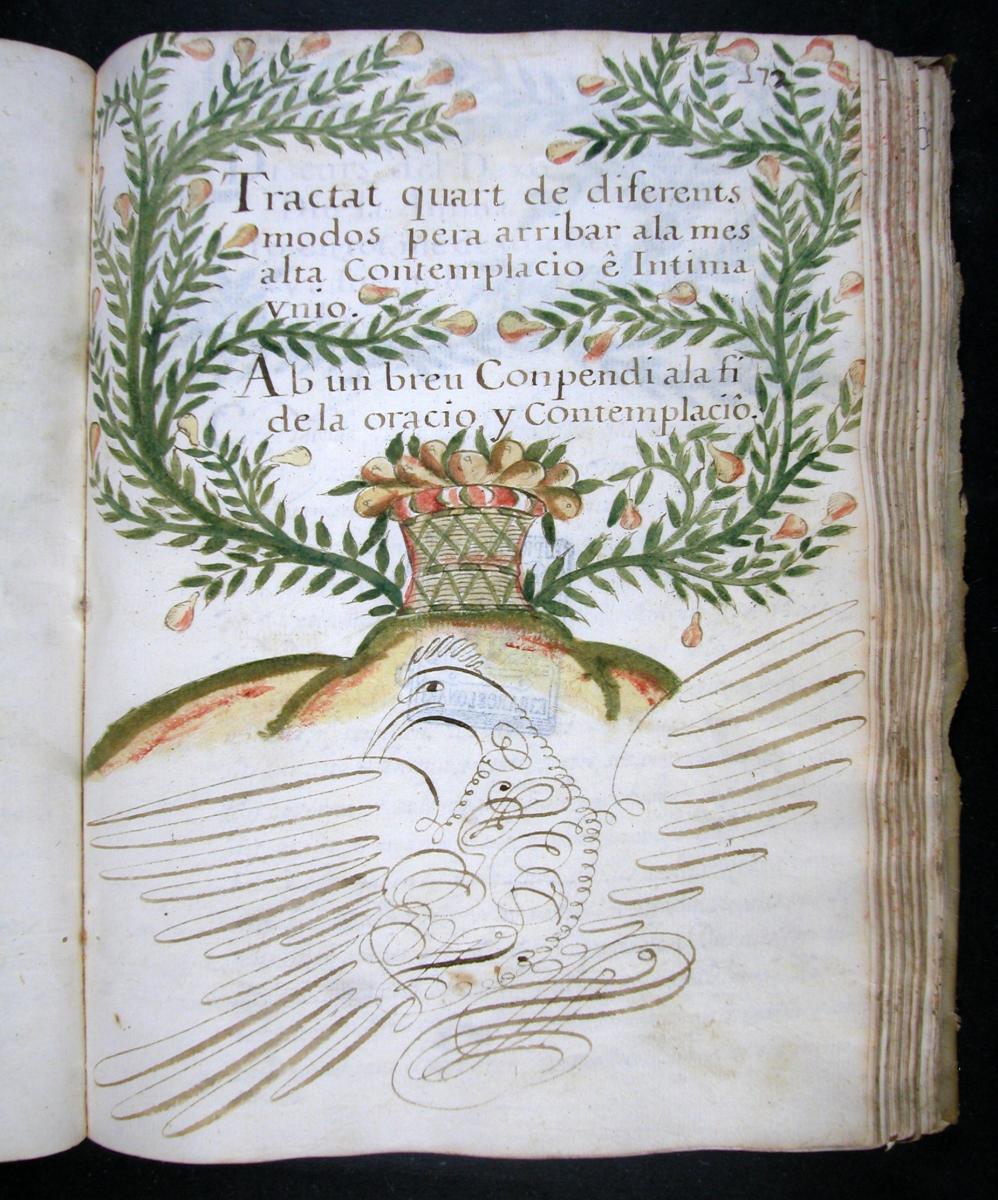 172
Tractat quart de diferents
modos pera arribar ala mes
alta Contemplacio ê Intima
vnio.
Ab un breu Conpendi ala fi
de la oracio y Contemplaciô.